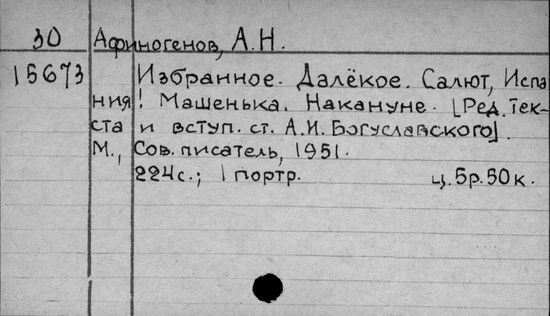 30 Афиногенов, А.Н.
15673 Избранное. Далёкое. Салют, Испа
ния! Машенька. Накануне. [Ред. тек-
ста и вступ. ст. А.И. Богуславского].
М., Сов. писатель, 1951.
224с.; 1 портр. ц. 5р. 50к.